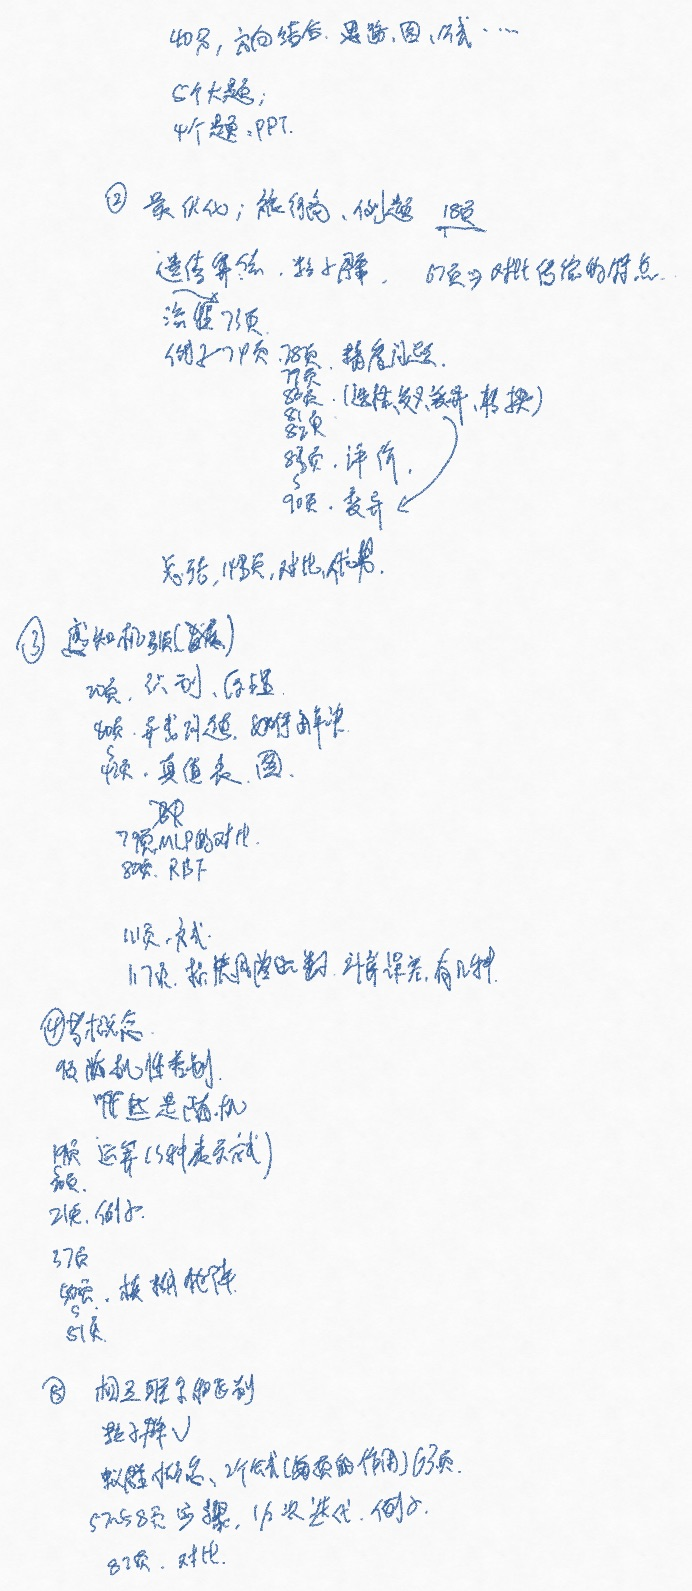 40分, 方向结合. 思路、图、公式……
5个大题;
4个题:PPT.
② 最优化; 旅行商、例题 18页
遗传算法、粒子群. 67页⇒对比传统的特点.
流程73页
例子74页. 78页. 精度问题.
79页
80页. (选择、交叉、变异、转换)
81
82页
83页. 评价.
90页. 变异
总结, 148页, 对比, 优势.
③ 感知机 页
页. 识别、
40页. 异或问题. 如何解决.
42页. 真值表. 图.
79页, MLP的对比.
80页. RBF
111页. 方式.
117页. 计算误差. 有几种.
④ 考概念.
9页 随机性类别.
哪些是随机
19页 运算(3种表示方式)
20页.
21页. 例子.
37页
50页. 模糊矩阵.
51页.
⑤ 相互
粒子群✓
蚁群概念、2个公式(每项的作用)63页.
57~58页步骤, 1/2次迭代. 例子.
82页. 对比.